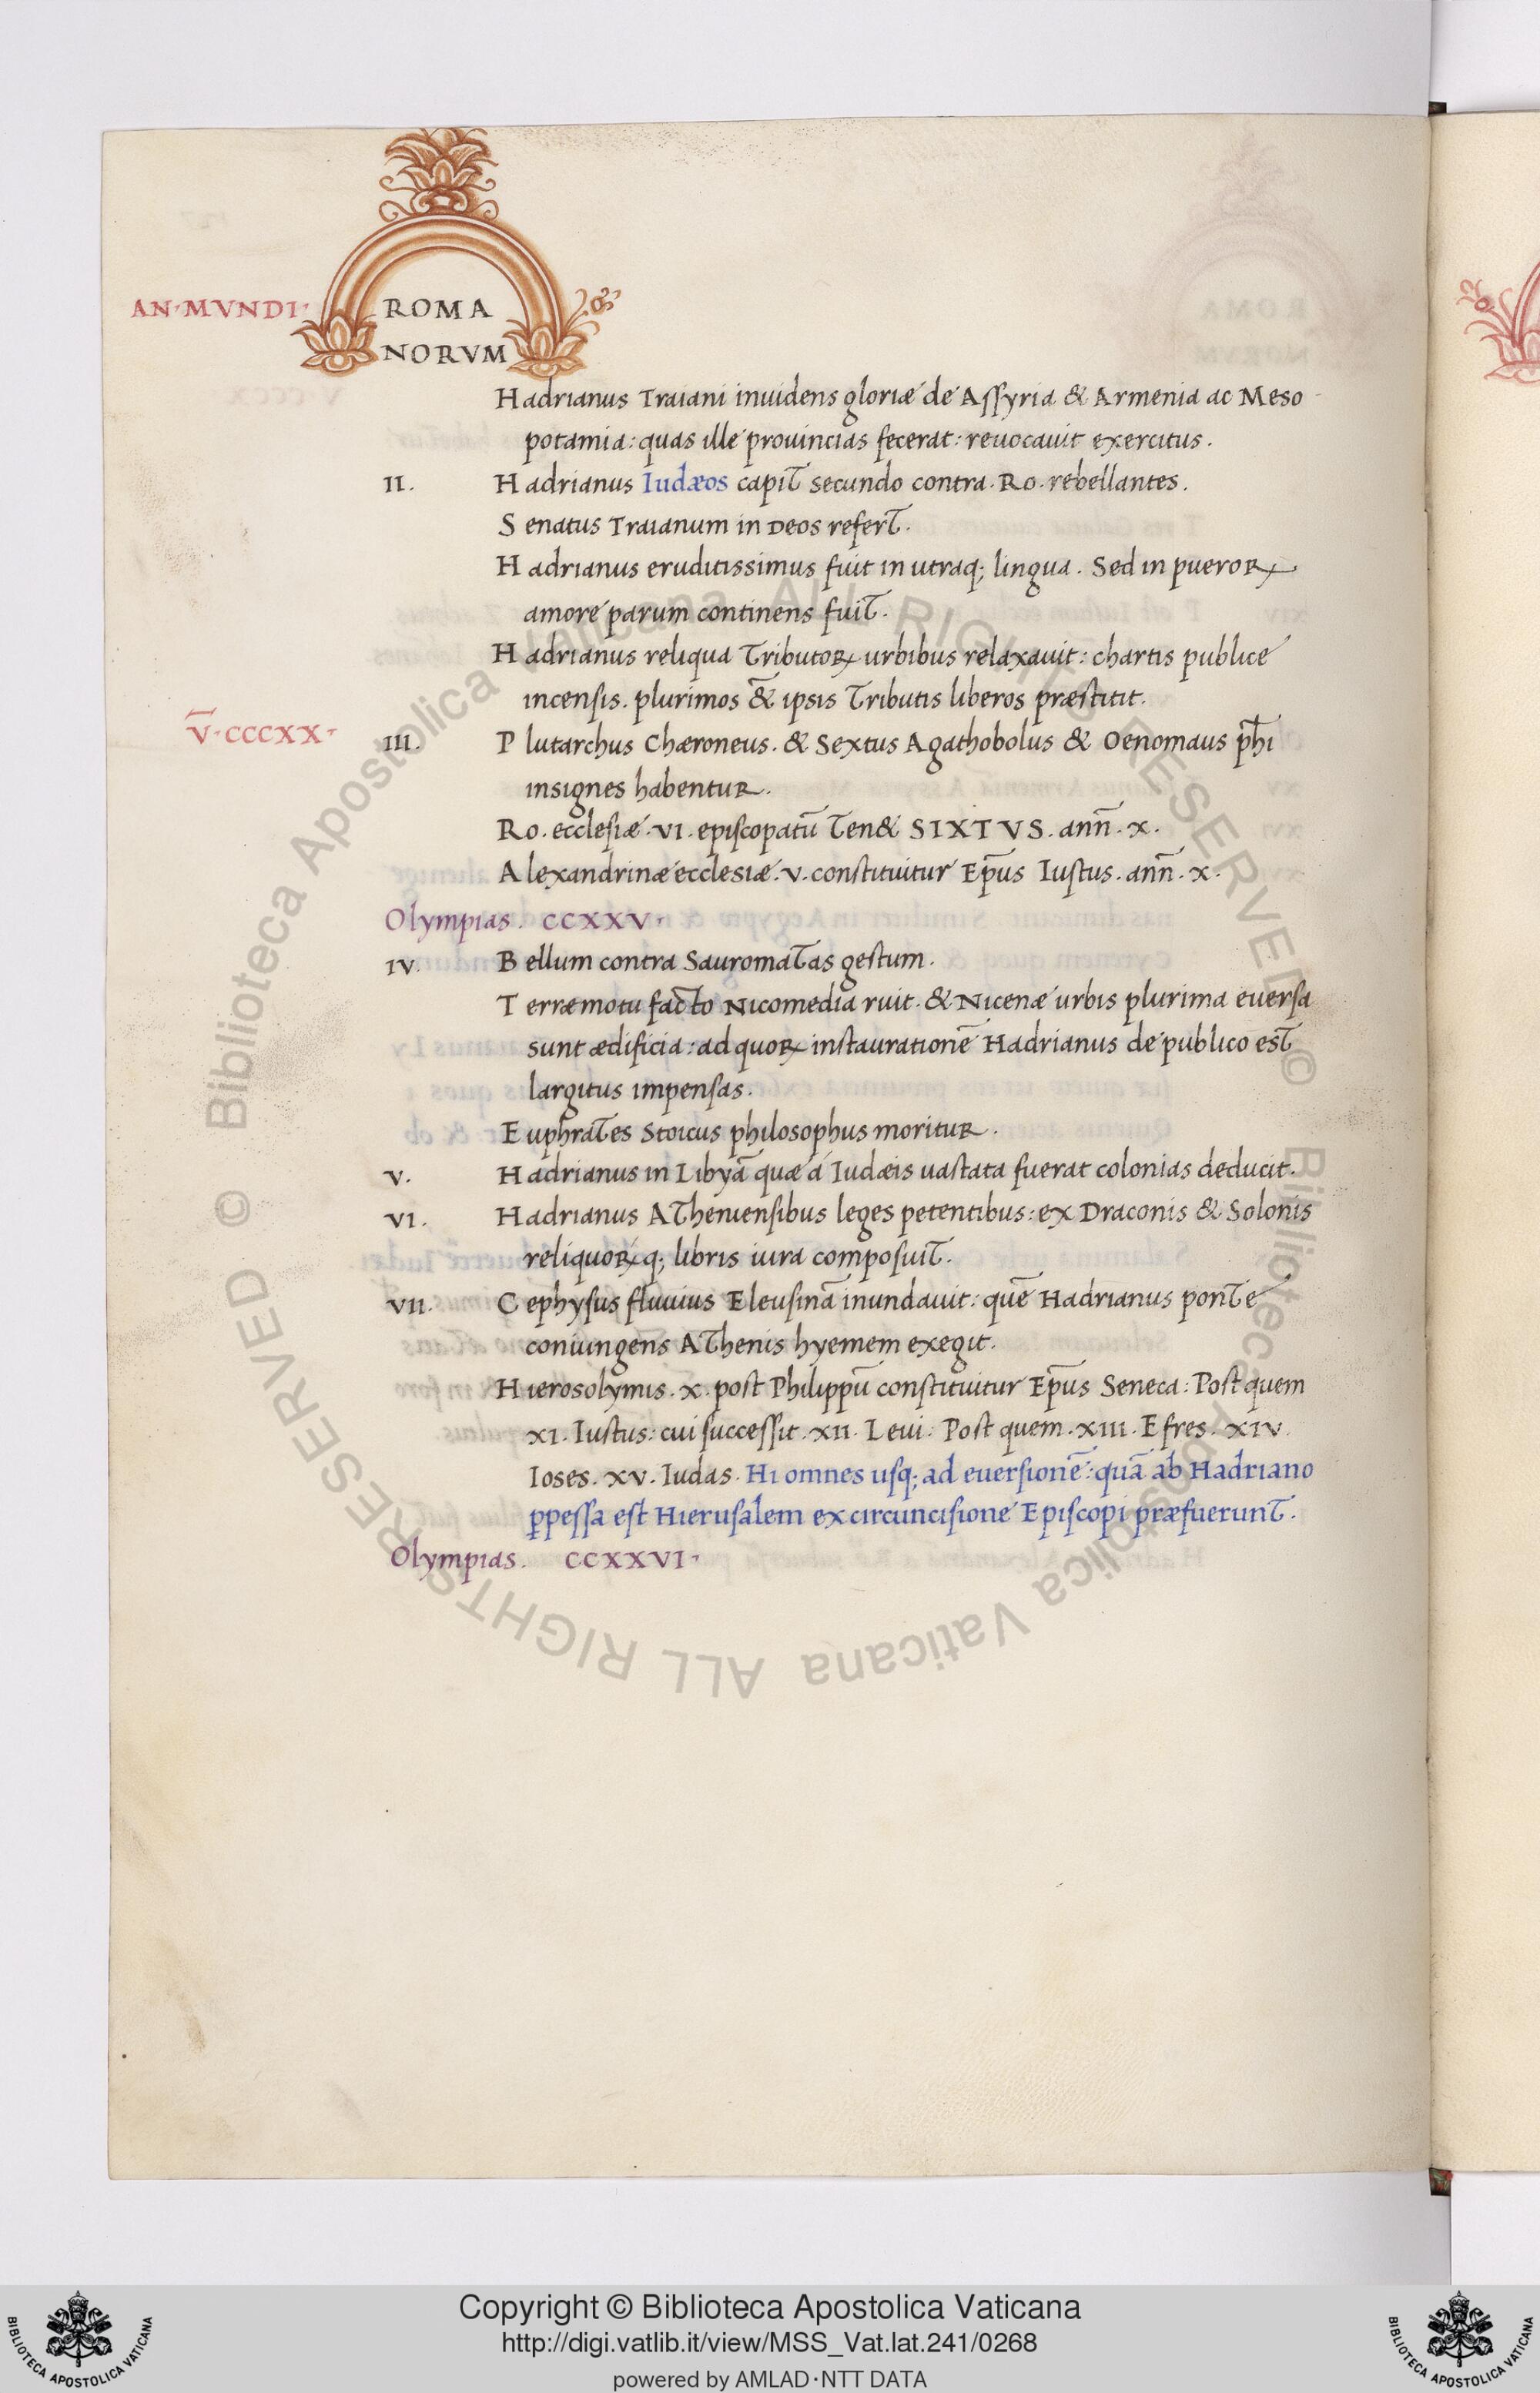 AN·MVNDI· ROMA
NORVM
Hadrianus Traiani inuidens gloriæ de Assyria & Armenia ac Meso
potamia: quas ille prouincias fecerat: reuocauit exercitus.
II. Hadrianus Iudæos capit secundo contra. Ro. rebellantes.
Senatus Traianum in Deos refert.
Hadrianus eruditissimus fuit in utraq; lingua. Sed in pueroꝝ
amore parum continens fuit.
Hadrianus reliqua Tributoꝝ urbibus relaxauit: chartis publice
incensis. plurimos & ipsis Tributis liberos præstitit.
V̅·CCCXX· III. Plutarchus Chæroneus. & Sextus Agathobolus & Oenomaus ph̅i
insignes habentur.
Ro. ecclesiæ. VI. episcopatū Ten& SIXTVS. ann̄. x.
Alexandrinæ ecclesiæ. v. constituitur Ep̄us Iustus. ann̄. x.
Olympias. CCXXV·
IV. Bellum contra Sauromatas gestum.
Terræmotu facto Nicomedia ruit. & Nicenæ urbis plurima euersa
sunt ædificia: ad quoꝝ instaurationē Hadrianus de publico est
largitus impensas.
Euphrates Stoicus philosophus moritur.
V. Hadrianus in Libyā quæ á Iudæis uastata fuerat colonias deducit.
VI. Hadrianus Atheniensibus leges petentibus: ex Draconis & Solonis
reliquoꝝq; libris iura composuit.
VII. Cephysus fluuius Eleusinā inundauit: quē Hadrianus ponte
coniungens Athenis hyemem exegit.
Hierosolymis. x. post Philippū constituitur Ep̄us Seneca: Post quem
XI. Iustus: cui successit. XII. Leui: Post quem. XIII. Efres. XIV.
Ioses. XV. Iudas. Hi omnes usq; ad euersionē: quā ab Hadriano
ꝑpessa est Hierusalem ex circuncisione Episcopi præfuerunt.
Olympias. CCXXVI·
© Biblioteca Apostolica Vaticana ALL RIGHTS RESERVED © Biblioteca Apostolica Vaticana ALL RIGHTS RESERVED
Copyright © Biblioteca Apostolica Vaticana
http://digi.vatlib.it/view/MSS_Vat.lat.241/0268
powered by AMLAD·NTT DATA
BIBLIOTECA APOSTOLICA VATICANA
BIBLIOTECA APOSTOLICA VATICANA